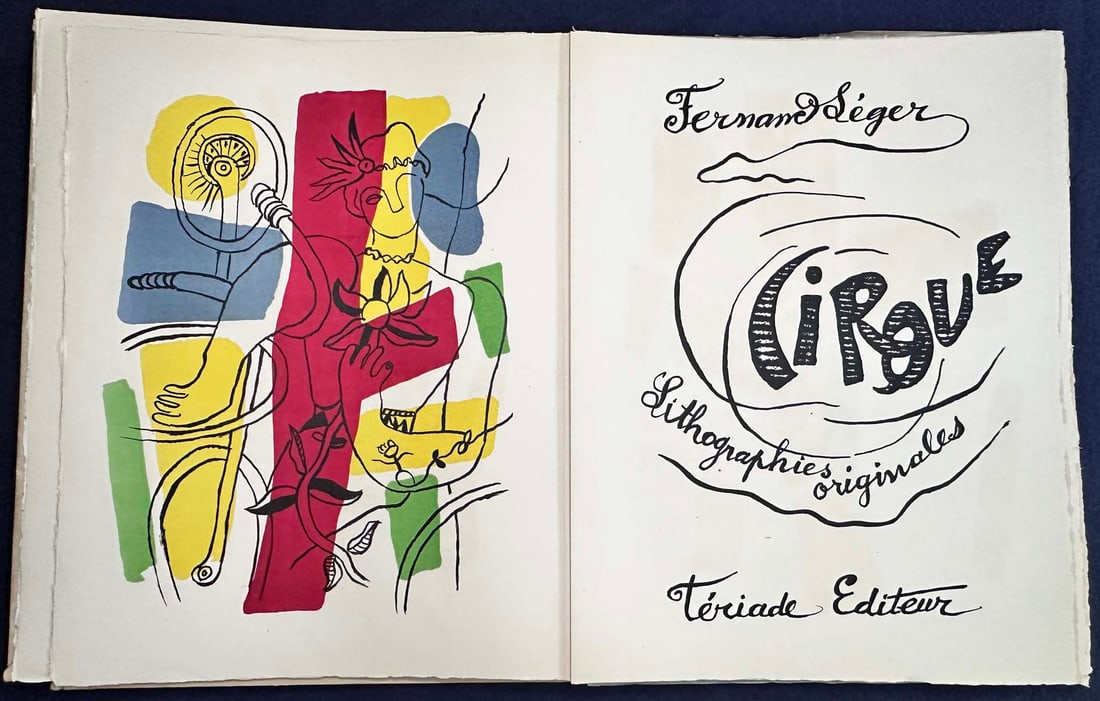 Fernand Léger
CiRqUE
Lithographies
originales
Tériade Editeur